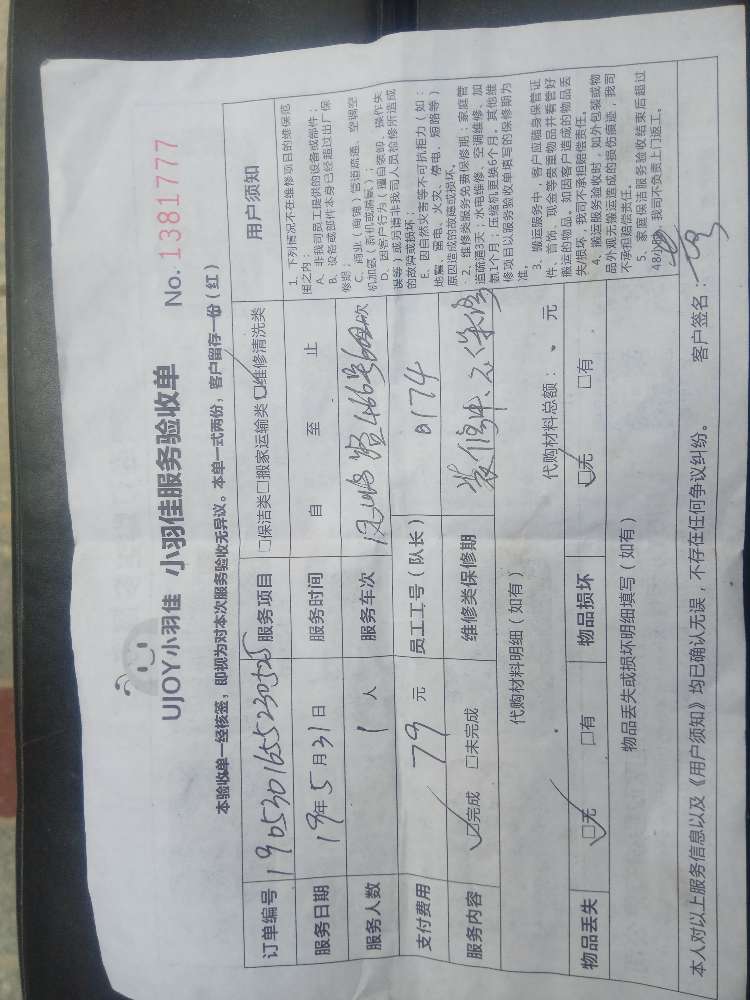 UJOY小羽佳 小羽佳服务验收单
No. 1381777
本验收单一经核签，即视为对本次服务验收无异议。本单一式两份，客户留存一份（红）
订单编号 1905301655230525 服务项目 □保洁类□搬家运输类□维修清洗类
服务日期 19年5月31日 服务时间 自 至 止
服务人数 1 人 服务车次
支付费用 79 元 员工工号（队长） 0174
服务内容 ☑完成 □未完成 维修类保修期
代购材料明细（如有） 代购材料总额： 元
物品丢失 ☑无 □有 物品损坏 ☑无 □有
物品丢失或损坏明细填写（如有）
用户须知
1、下列情况不在维修项目的维保范
围之内：
A、非我司员工提供的设备或部件；
B、设备或部件本身已经超过出厂保
修期；
C、商业（商铺）管道疏通、空调空
机加氨（新机或漏氟）；
D、因客户行为（擅自装卸、操作失
误等）或方请非我司人员检修所造成
的故障或损坏；
E、因自然灾害等不可抗拒力（如：
地震、雷电、火灾、停电、短路等）
原因造成的故障或损坏。
2、维修类服务免费保修期：家庭管
道疏通3天；水电维修、空调维修、加
氨1个月；压缩机更换6个月。其他维
修项目以服务验收单填写的保修期为
准。
3、搬运服务中，客户应随身保管证
件、首饰、现金等贵重物品并看管好
搬运的物品。如因客户造成的物品丢
失/损坏，我司不承担赔偿责任。
4、搬运服务验收时，如外包装或物
品外观无搬运造成的损伤痕迹，我司
不承担赔偿责任。
5、家庭保洁服务验收结束后超过
48小时，我司不负责上门返工。
本人对以上服务信息以及《用户须知》均已确认无误，不存在任何争议纠纷。 客户签名：